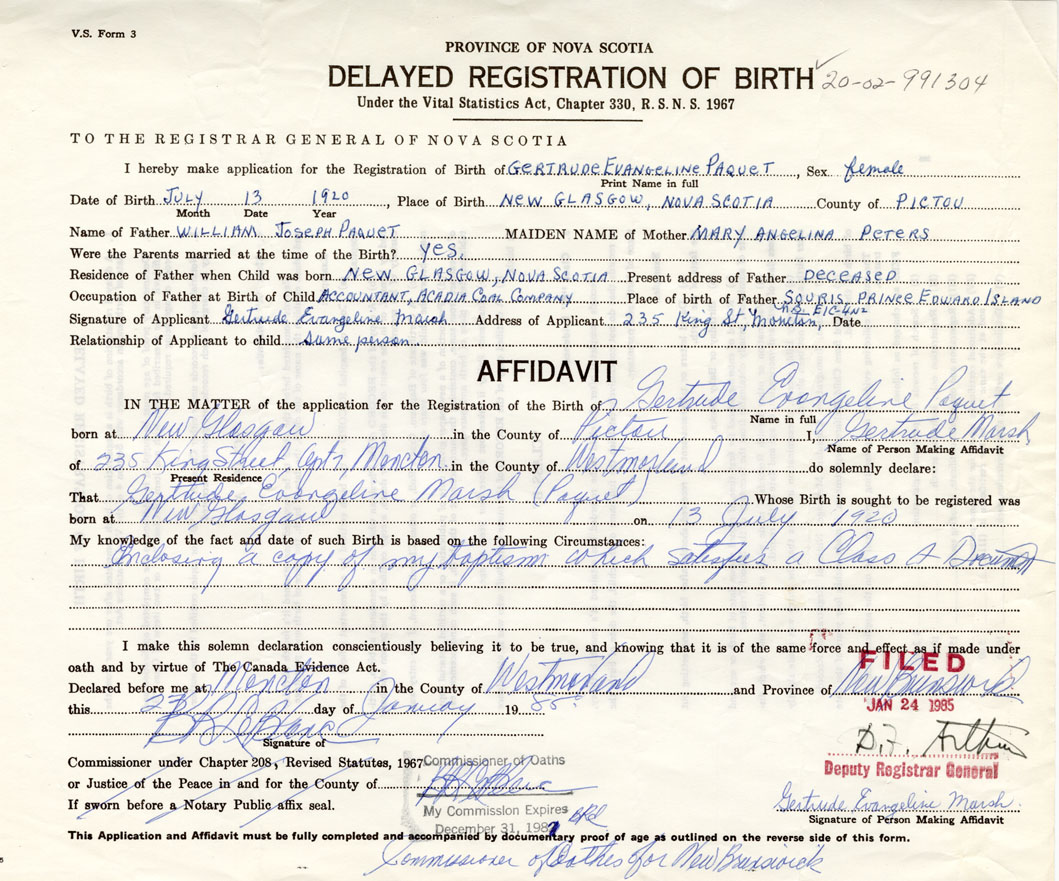 V.S. Form 3
PROVINCE OF NOVA SCOTIA
DELAYED REGISTRATION OF BIRTH 20-02-991304
Under the Vital Statistics Act, Chapter 330, R.S.N.S. 1967
TO THE REGISTRAR GENERAL OF NOVA SCOTIA
I hereby make application for the Registration of Birth of GERTRUDE EVANGELINE PAQUET, Sex female
Print Name in full
Date of Birth JULY 13 1920, Place of Birth NEW GLASGOW, NOVA SCOTIA County of PICTOU
Month Date Year
Name of Father WILLIAM JOSEPH PAQUET MAIDEN NAME of Mother MARY ANGELINA PETERS
Were the Parents married at the time of the Birth? YES.
Residence of Father when Child was born NEW GLASGOW, NOVA SCOTIA Present address of Father DECEASED
Occupation of Father at Birth of Child ACCOUNTANT, ACADIA COAL COMPANY Place of birth of Father SOURIS, PRINCE EDWARD ISLAND
N.B. E1C-4N2
Signature of Applicant Gertrude Evangeline Marsh Address of Applicant 235 King St, Moncton, Date
Relationship of Applicant to child same person.
AFFIDAVIT
IN THE MATTER of the application for the Registration of the Birth of Gertrude Evangeline Paquet
Name in full
born at New Glasgow in the County of Pictou I, Gertrude Marsh
Name of Person Making Affidavit
of 235 King Street, Apt 2, Moncton in the County of Westmorland do solemnly declare:
Present Residence
That Gertrude Evangeline Marsh (Paquet) Whose Birth is sought to be registered was
born at New Glasgow on 13 July 1920
My knowledge of the fact and date of such Birth is based on the following Circumstances:
Enclosing a copy of my baptism which satisfies a Class A Document
I make this solemn declaration conscientiously believing it to be true, and knowing that it is of the same force and effect as if made under
oath and by virtue of The Canada Evidence Act.
FILED
Declared before me at Moncton in the County of Westmorland and Province of New Brunswick
JAN 24 1985
this day of January 1985
B LeBlanc
Signature of
Deputy Registrar General
Commissioner under Chapter 208, Revised Statutes, 1967 Commissioner of Oaths
or Justice of the Peace in and for the County of
If sworn before a Notary Public affix seal. My Commission Expires
Gertrude Evangeline Marsh
Signature of Person Making Affidavit
December 31, 198
This Application and Affidavit must be fully completed and accompanied by documentary proof of age as outlined on the reverse side of this form.
Commissioner of Oathes for New Brunswick